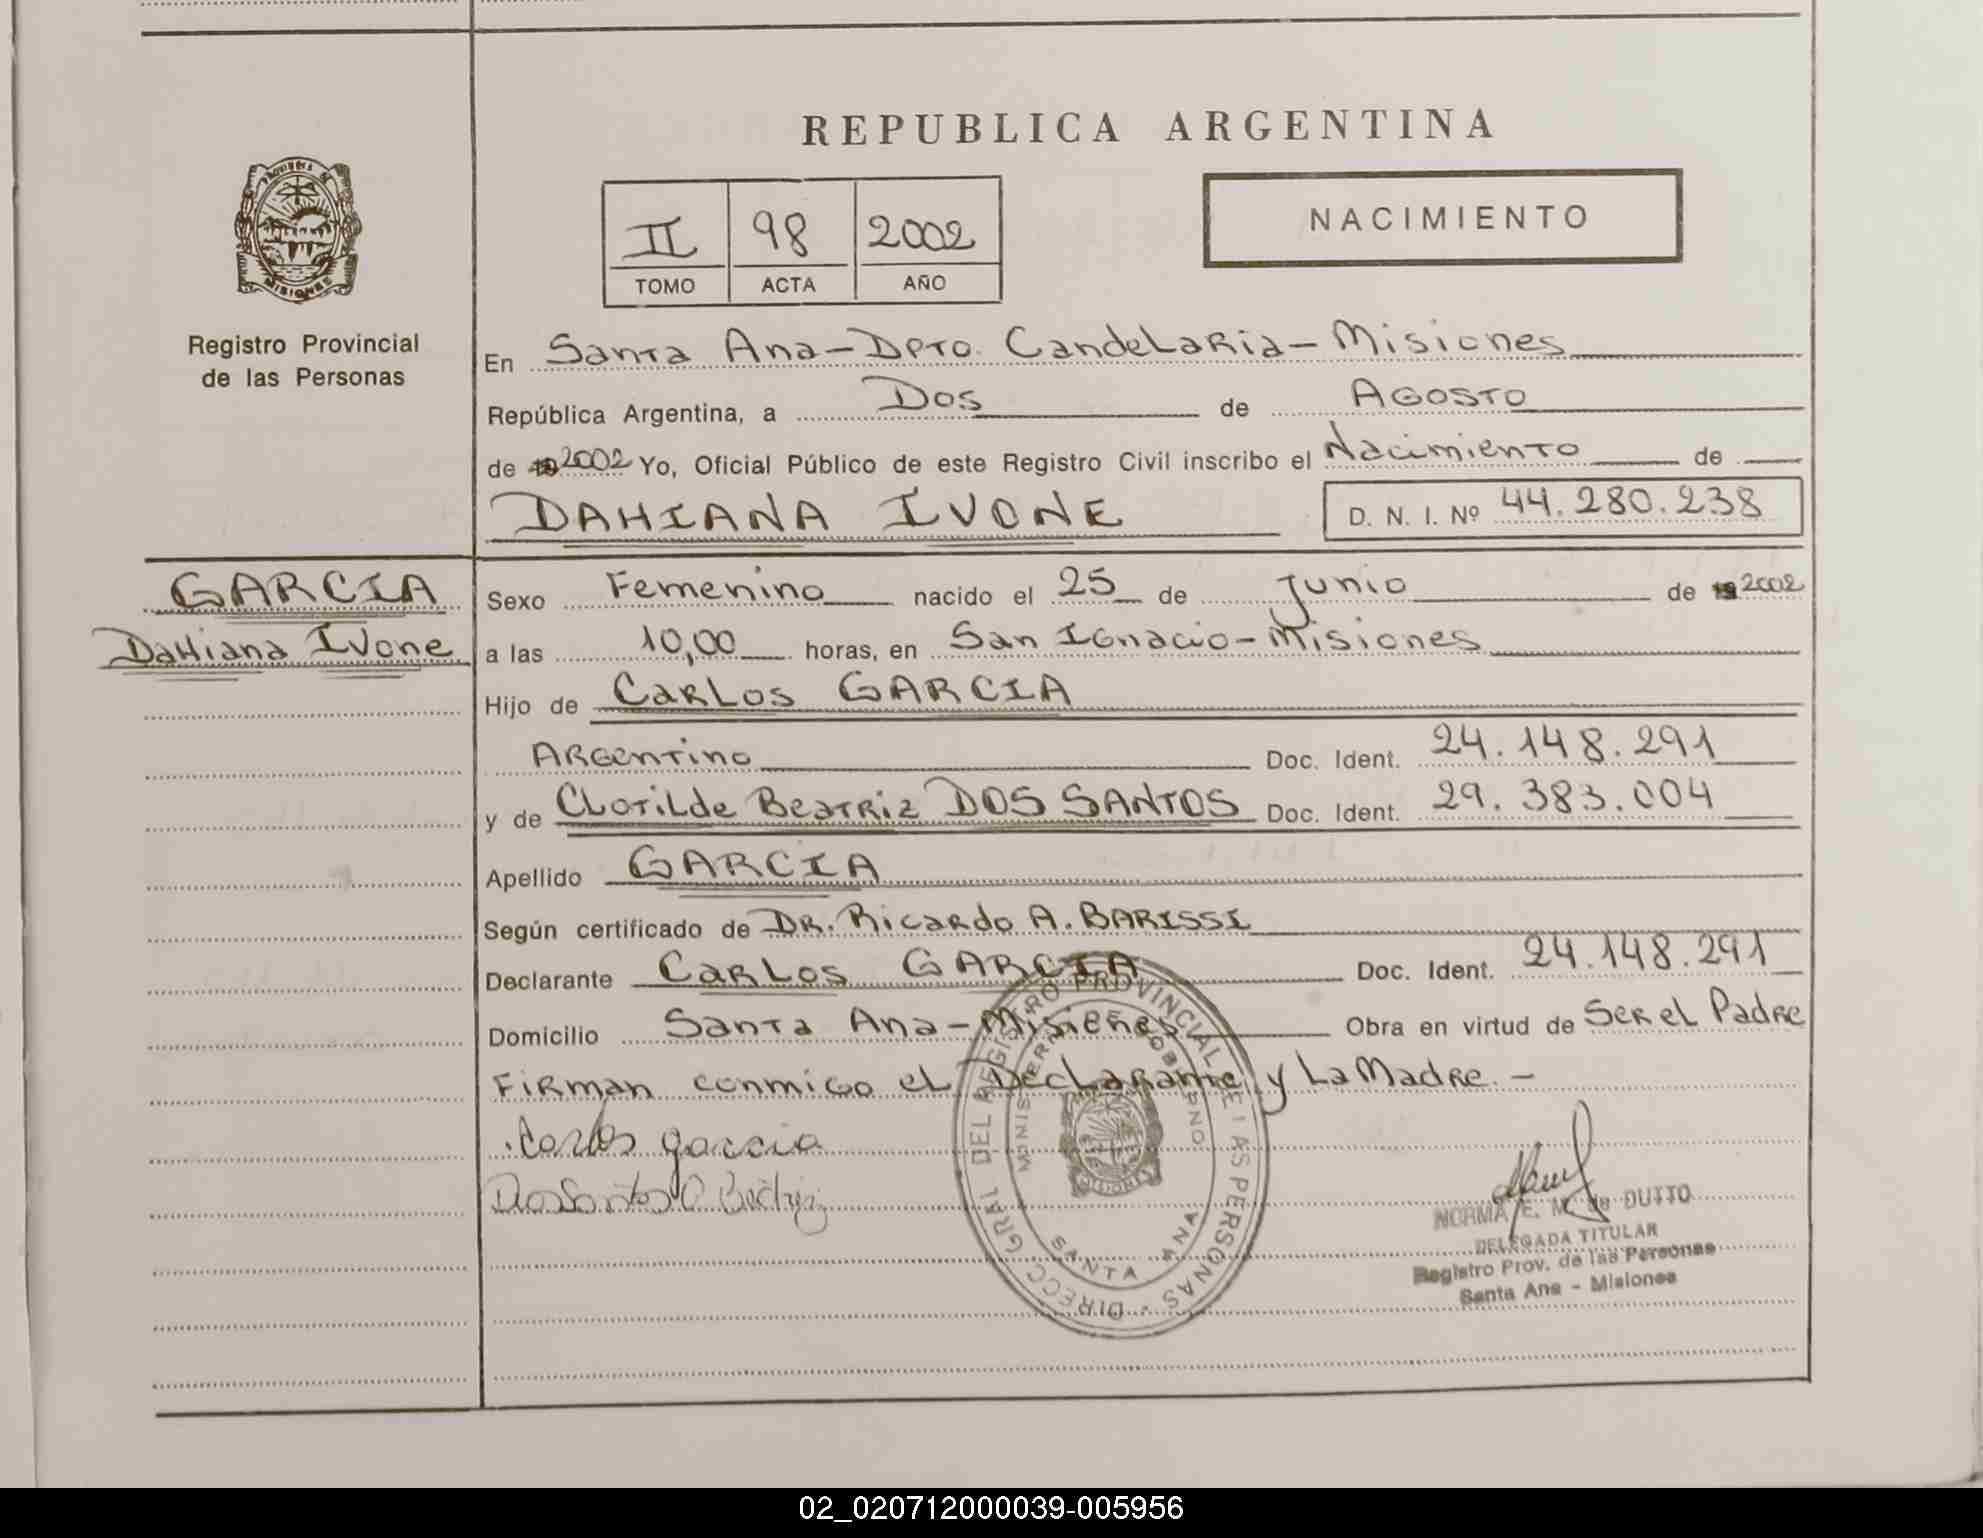 REPUBLICA ARGENTINA
PROVINCIA DE
MISIONES
Registro Provincial
de las Personas
II 98 2002
TOMO ACTA AÑO
NACIMIENTO
En Santa Ana-Dpto. Candelaria-Misiones
República Argentina, a Dos de Agosto
de 2002 Yo, Oficial Público de este Registro Civil inscribo el Nacimiento de
DAHIANA IVONE D. N. I. Nº 44.280.238
GARCIA
Dahiana Ivone
Sexo Femenino nacido el 25 de Junio de 2002
a las 10,00 horas, en San Ignacio-Misiones
Hijo de Carlos GARCIA
Argentino Doc. Ident. 24.148.291
y de Clotilde Beatriz DOS SANTOS Doc. Ident. 29.383.004
Apellido GARCIA
Según certificado de DR. Ricardo A. BARISSI
Declarante Carlos GARCIA Doc. Ident. 24.148.291
Domicilio Santa Ana-Misiones Obra en virtud de Ser el Padre
Firman conmigo el Declarante y La Madre.-
Carlos garcia
Dos Santos C Beatriz
DIRECC. GRAL. DEL REGISTRO PROVINCIAL DE LAS PERSONAS
MINISTERIO DE GOBIERNO
MISIONES
SANTA ANA
NORMA E. M. de DUTTO
DELEGADA TITULAR
Registro Prov. de las Personas
Santa Ana - Misiones
02_020712000039-005956